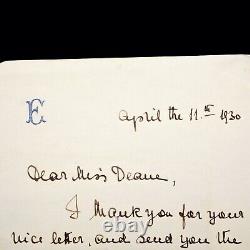 E
April the 11.th 1930
Dear Miss Deane,
I thank you for your
nice letter, and send you the